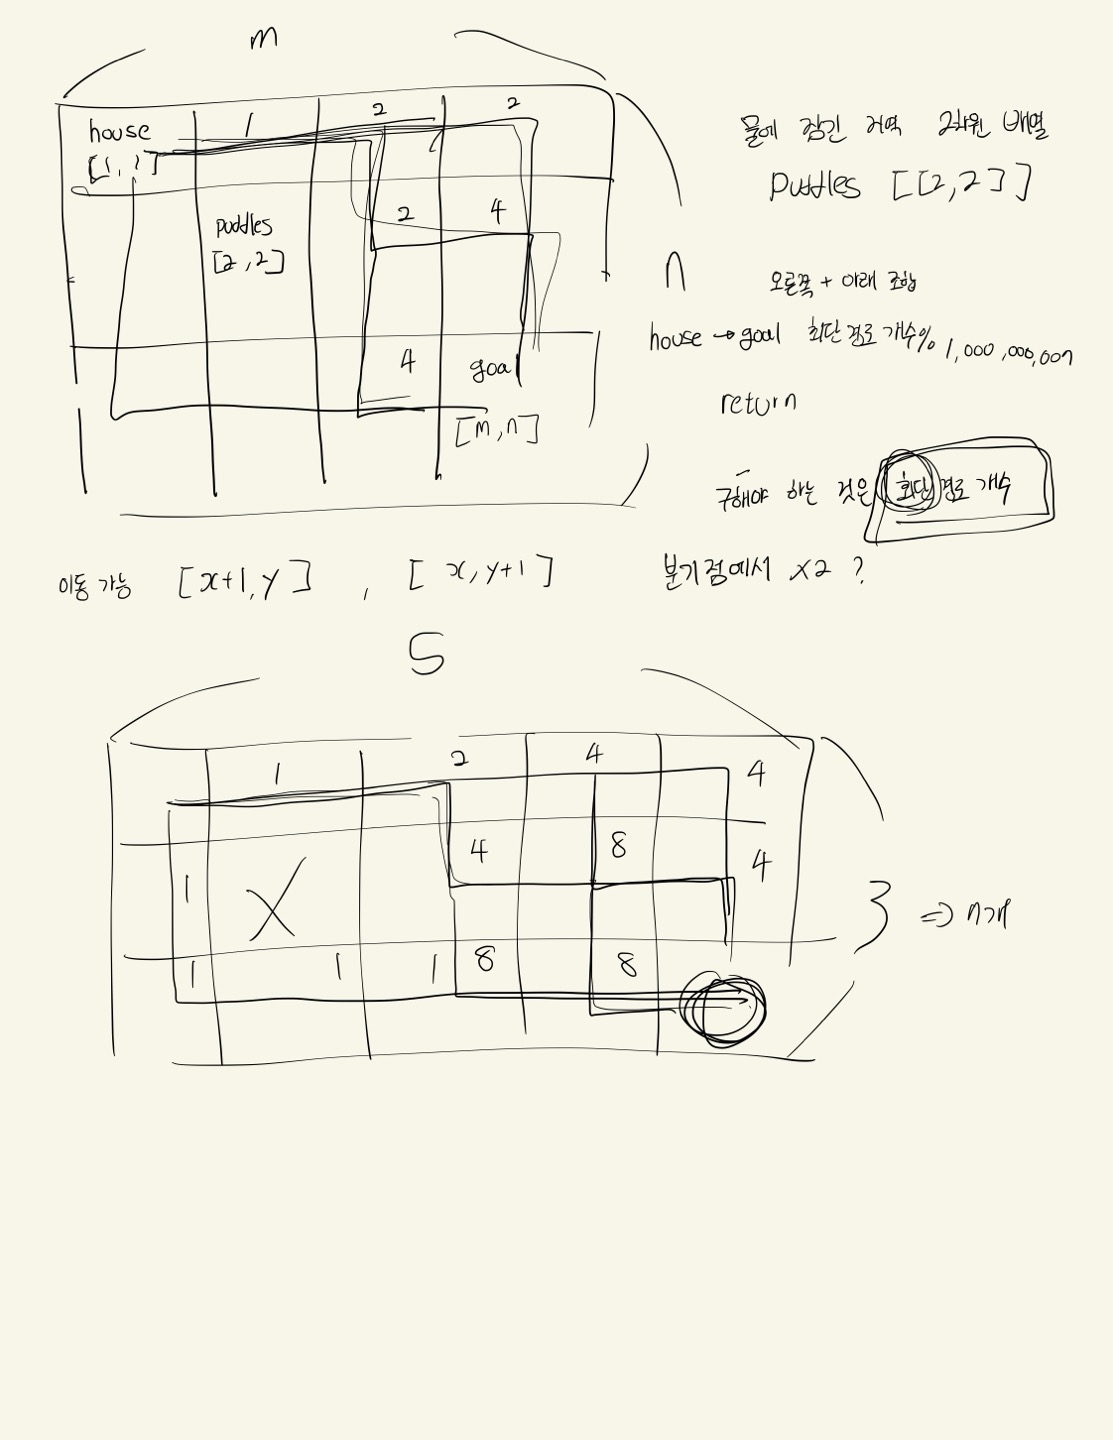 m
house
[1, 1]
1
2
2
puddles
[2,2]
2
4
4
goal
[m,n]
n
물에 잠긴 지역 2차원 배열
puddles [[2,2]]
오른쪽 + 아래 조합
house → goal 최단 경로 개수% 1,000,000,007
return
구해야 하는 것은 최단 경로 개수
이동 가능 [x+1,y] , [x,y+1]
분기점에서 x2 ?
5
1
2
4
4
1
X
4
8
4
1
1
1
8
8
3 => n개